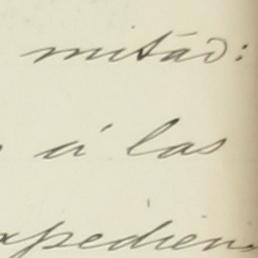 mitád:
á las
xpedien